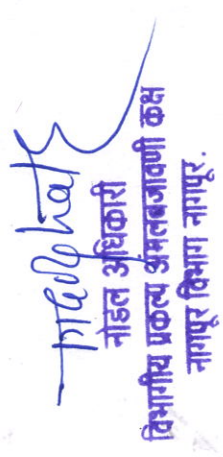 नोडल अधिकारी
विभागीय प्रकल्प अंमलबजावणी कक्ष
नागपूर विभाग नागपूर.